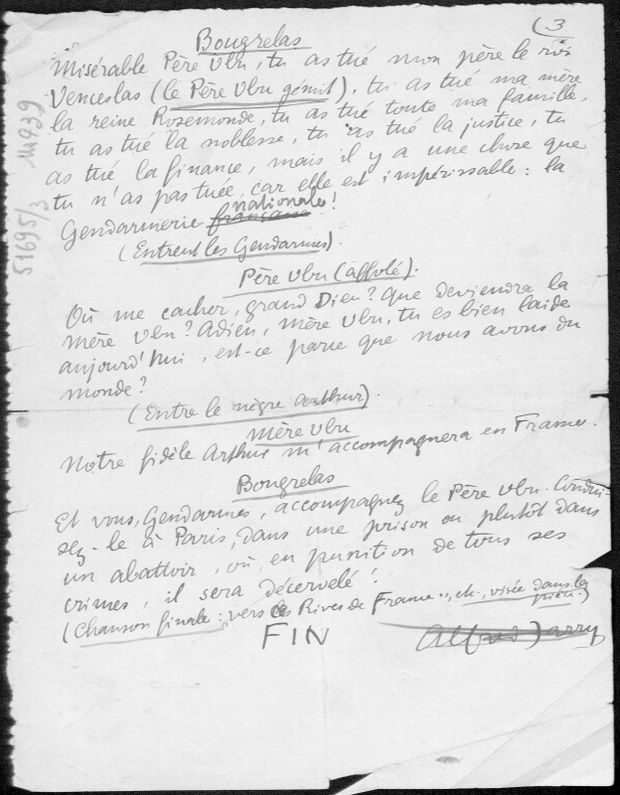 (3
Bougrelas
Misérable Père Ubu, tu as tué mon père le roi
Venceslas (le Père Ubu gémit), tu as tué ma mère
la reine Rosemonde, tu as tué toute ma famille,
tu as tué la noblesse, tu as tué la justice, tu
as tué la finance, mais il y a une chose que
tu n'as pas tuée, car elle est impérissable : la
Gendarmerie française nationale !
(Entrent les Gendarmes).
Père Ubu (affolé).
Où me cacher, grand Dieu ? Que deviendra la
mère Ubu ? Adieu, mère Ubu, tu es bien laide
aujourd'hui, est-ce parce que nous avons du
monde ?
(Entre le nègre Arthur).
Mère Ubu
Notre fidèle Arthur m'accompagnera en France.
Bougrelas
Et vous, Gendarmes, accompagnez le Père Ubu. Condui-
sez-le à Paris, dans une prison ou plutôt dans
un abattoir, où, en punition de tous ses
crimes, il sera décervelé !
(Chanson finale : "vers les Rives de France", etc., visée dans la
pièce.)
FIN
Alfred Jarry
51695/3